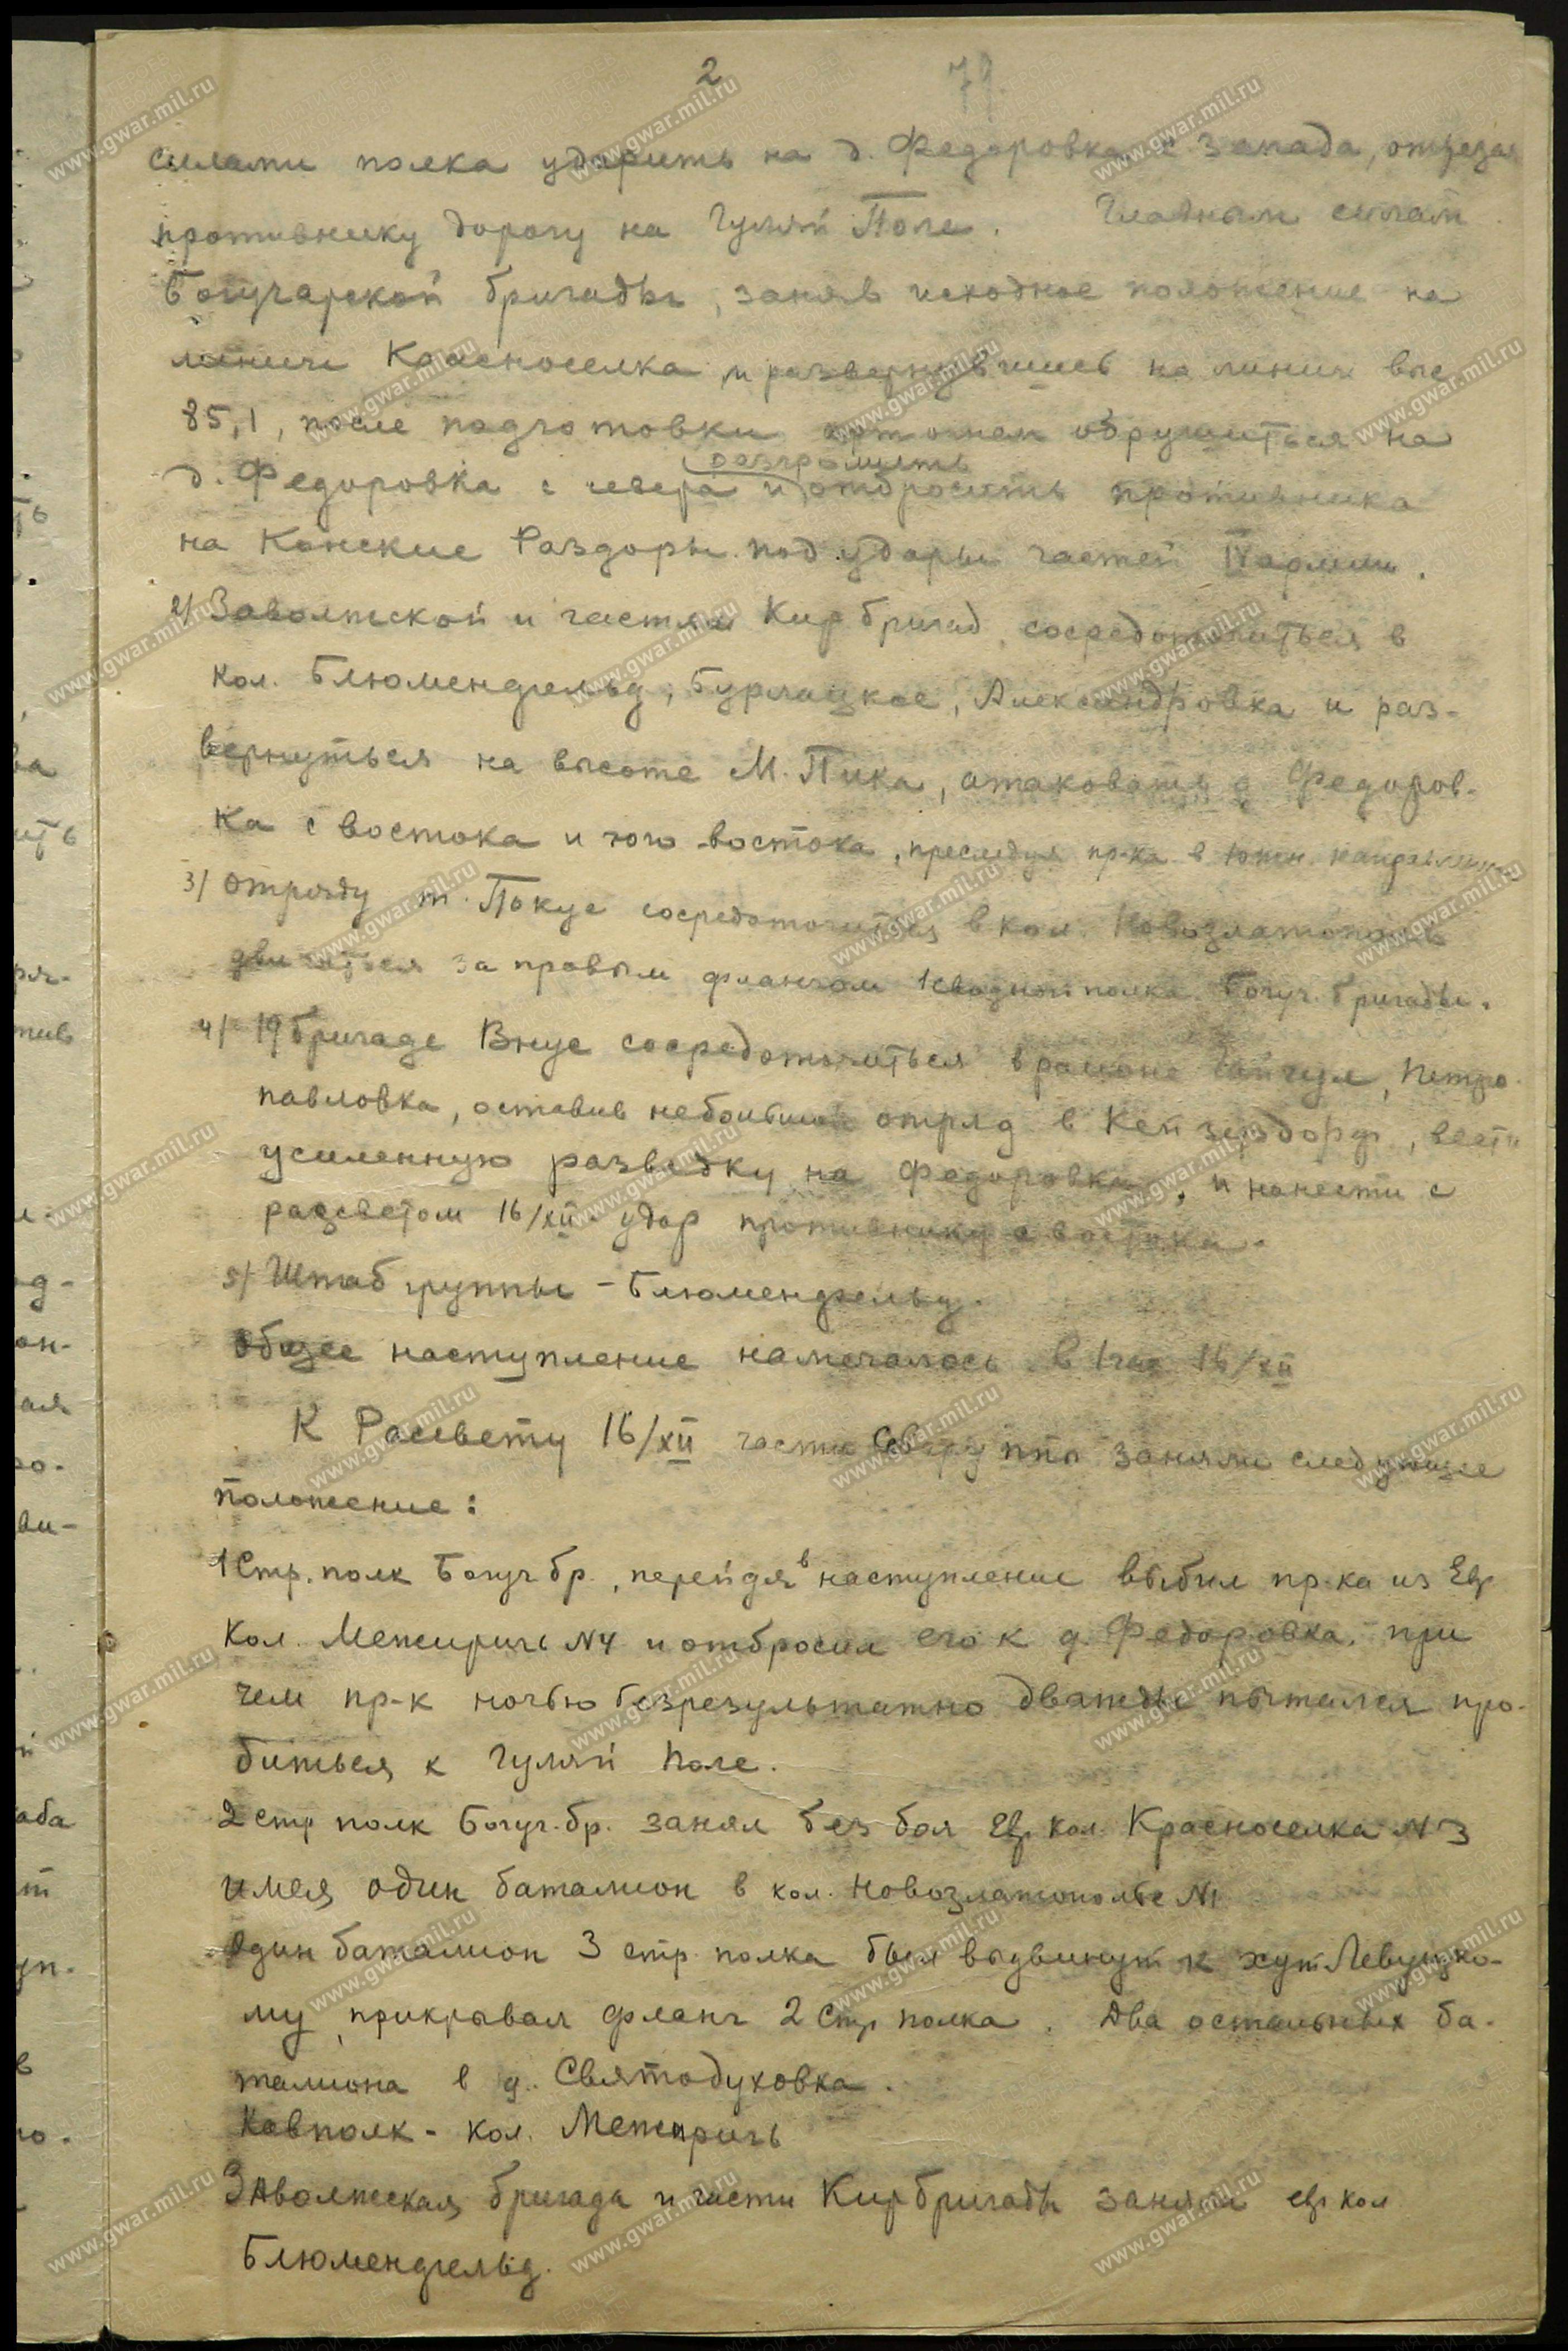 2 79
силами полка ударить на д. Федоровка с запада, отрезая
противнику дорогу на Гуляй Поле. Главным силам
Богучарской бригады, заняв исходное положение на
линии Красноселка и развернувшись на линии выс
85,1, после подготовки артогнем обрушиться на
разгромить
д. Федоровка с севера и отбросить противника
на Конские Раздоры под удары частей IV армии.
2/ Заволжской и частям Кирбригад сосредоточиться в
кол. Блюменфельд, Бурлацкое, Александровка и раз-
вернуться на высоте М. Пика, атаковать д Федоров-
ка с востока и юго-востока, преследуя пр-ка в южн. направлении
3/ Отряду т. Покус сосредоточиться в кол. Новозлатополь
двигаться за правым флангом 1 сводного полка Богуч. бригады.
4/ 19 бригаде Внус сосредоточиться в районе Гайчул, Петро-
павловка, оставив небольшой отряд в Кейзердорф, вести
усиленную разведку на Федоровку, и нанести с
рассветом 16/XII удар противнику с востока.
5/ Штаб группы - Блюменфельд.
Общее наступление намечалось в 1 час 16/XII
К Рассвету 16/XII части Севгруппы заняли следующее
положение:
1 Стр. полк Богуч бр., перейдя в наступление выбил пр-ка из Евр
Кол. Межиричь N4 и отбросил его к д. Федоровка, при
чем пр-к ночью безрезультатно дважды пытался про-
биться к Гуляй Поле.
2 стр полк Богуч. бр. занял без боя Евр. кол. Красноселка N3
имея один батальон в кол. Новозлатополье N1
Один баталион 3 стр. полка был выдвинут к хут Левуцко-
му, прикрывая фланг 2 Стр полка. Два остальных ба-
талиона в д. Святодуховка.
Кавполк - кол. Межиричь
Заволжская бригада и части Кирбригады заняли евр кол
Блюменфельд.
www.gwar.mil.ru